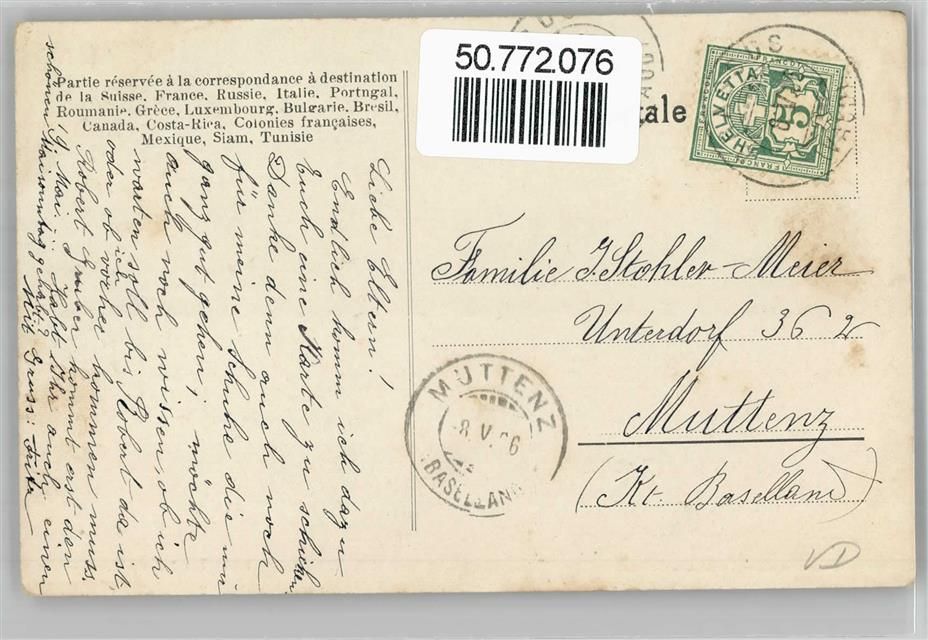 50.772.076
tale
Partie réservée à la correspondance à destination
de la Suisse, France, Russie, Italie, Portugal,
Roumanie, Grèce, Luxembourg, Bulgarie, Bresil,
Canada, Costa-Rica, Colonies françaises,
Mexique, Siam, Tunisie
HELVETIA
5
FRANCO
Liebe Eltern!
Endlich komm ich dazu
Euch eine Karte zu schicken.
Danke denn auch noch
für meine Schuhe die mir
ganz gut gehen; möchte
auch noch wissen ob ich
warten soll bis Robert da ist
oder ob ich vorher kommen muss.
Robert Gruber kommt erst den
19. Mai. Habt Ihr auch einen
schönen Maisonntag gehabt?
Mit Gruss: Fritz
Familie J. Stohler-Meier
Unterdorf 362
Muttenz
(Kt. Baselland)
MUTTENZ
8.V.06
(BASELLAND)
VD